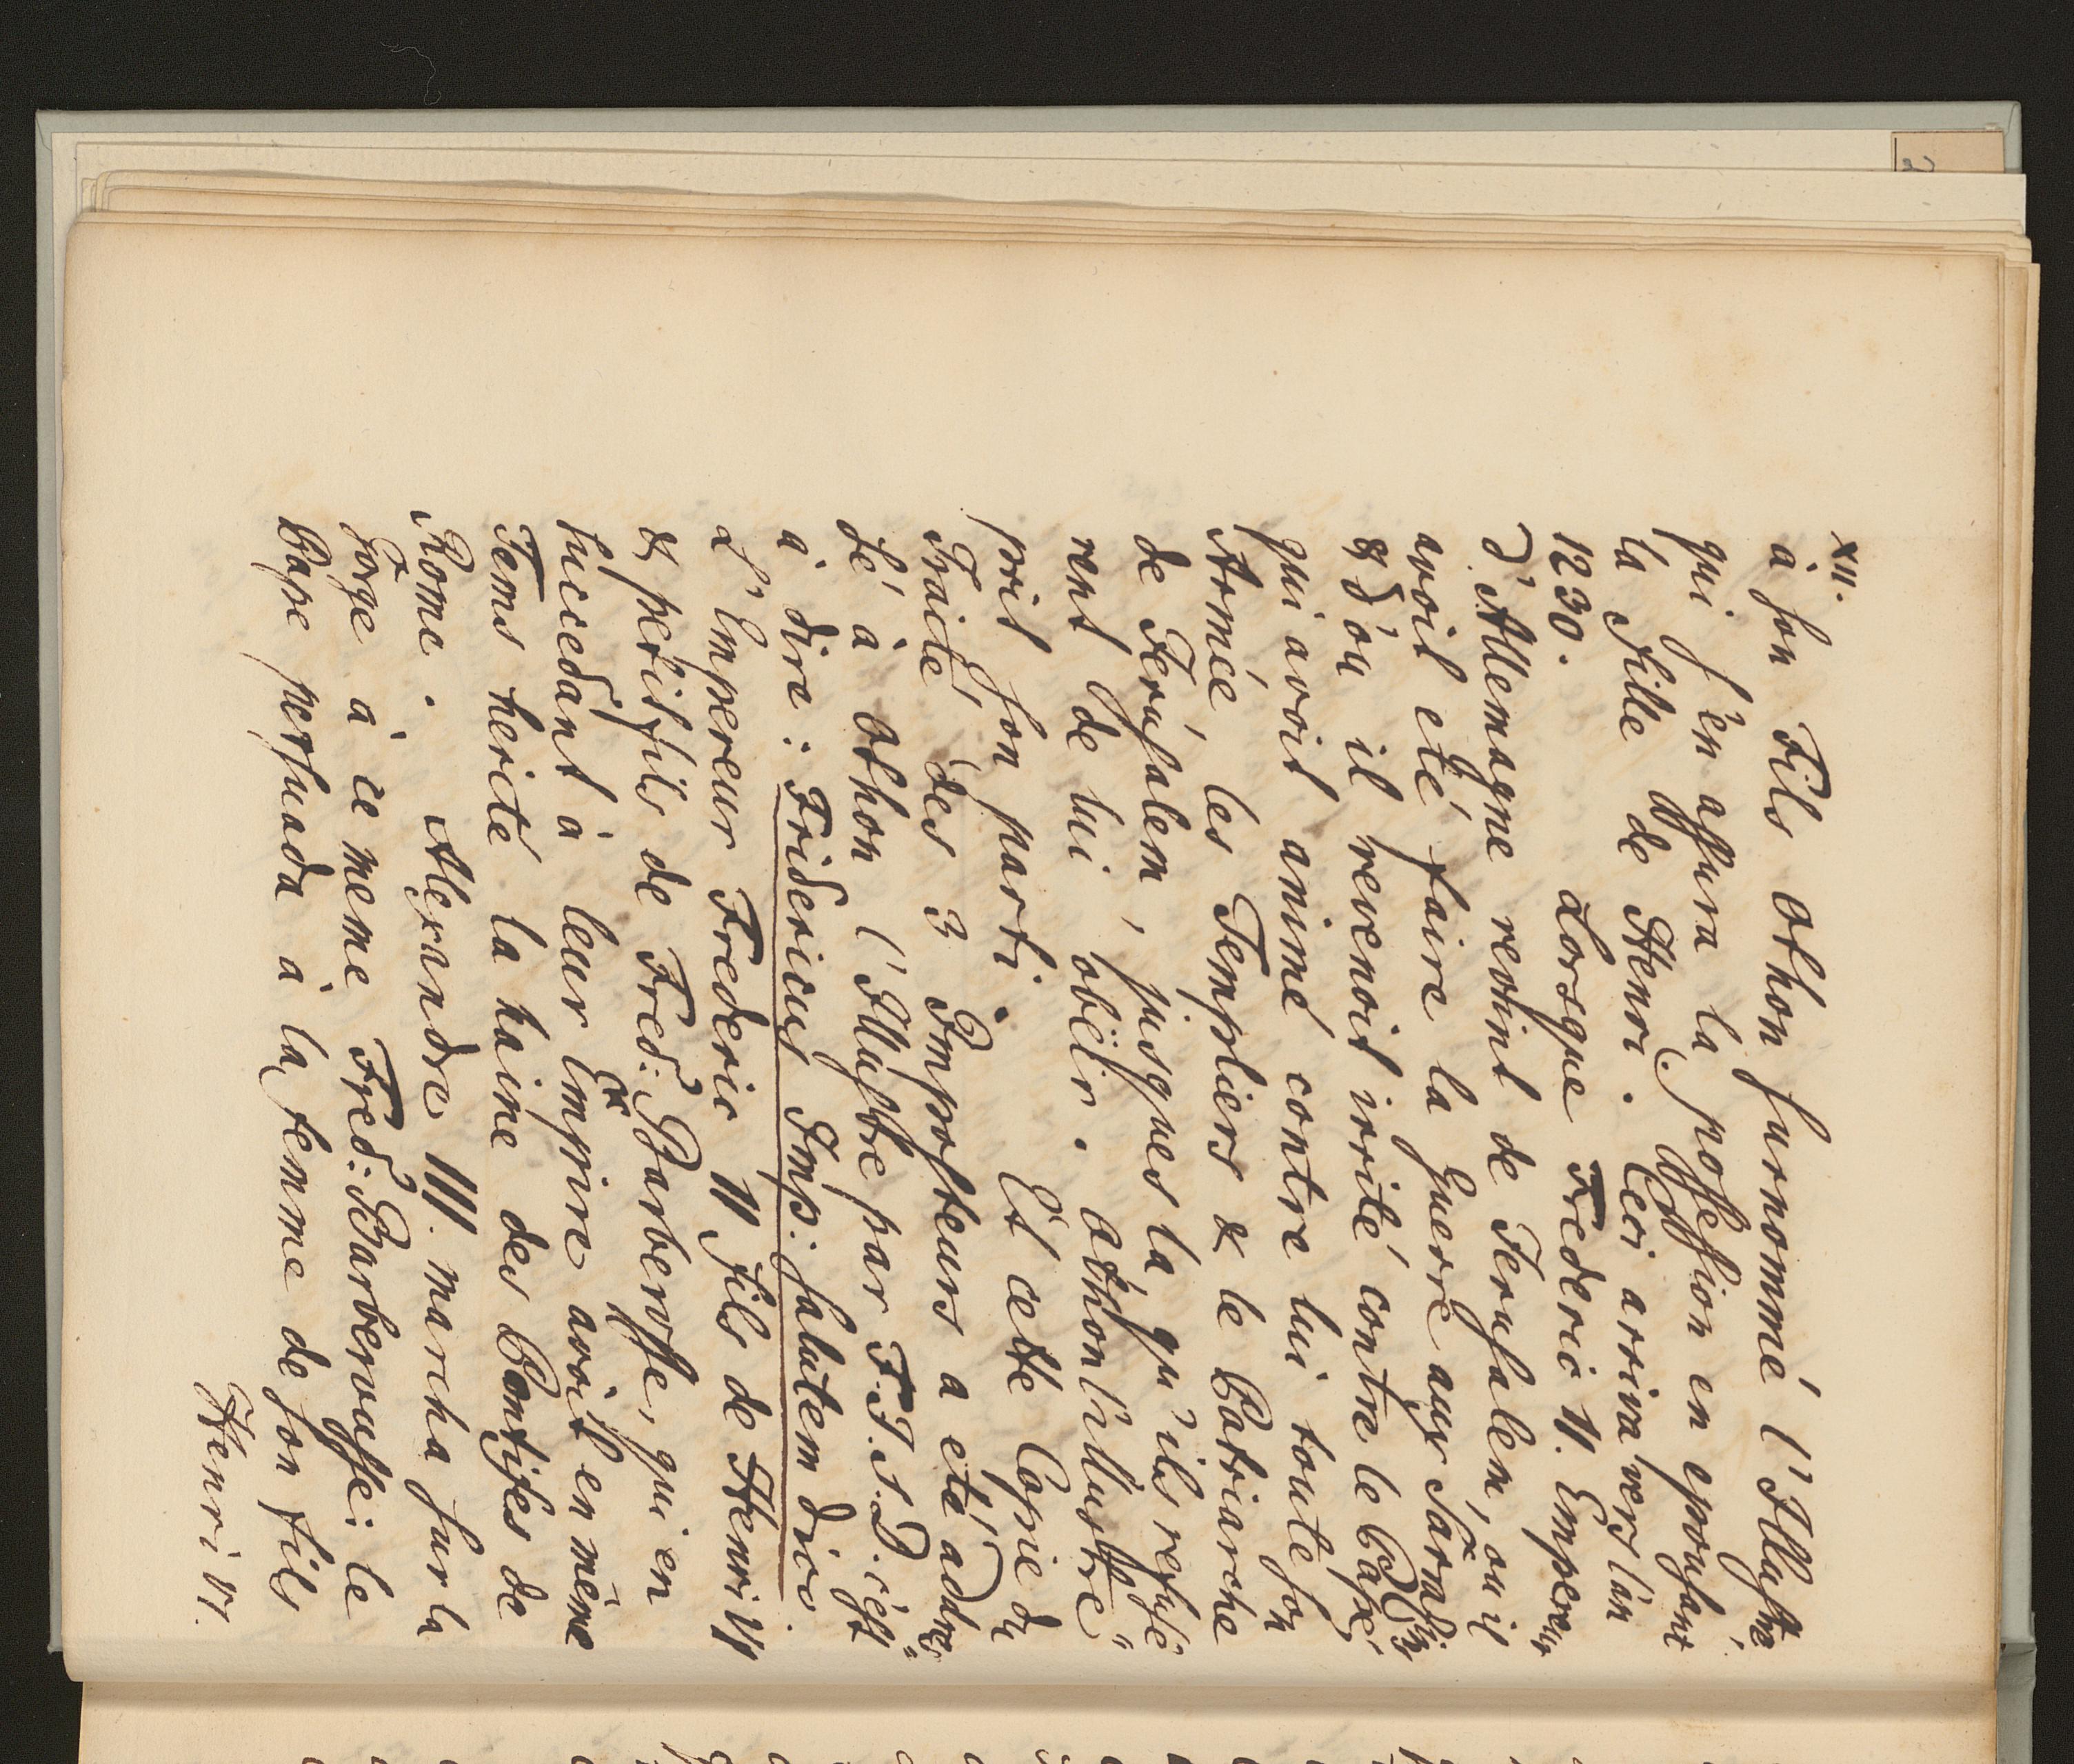 XII.
à son Fils Othon surnommé l'Illustre
qui s'en assura la possession en epousant
la Fille de Henri. Ceci arriva vers l'an
1230. Lorsque Frederic II. Empereur
d'Allemagne revint de Jerusalem, ou il
avoit eté faire la Guerre aux Sarrasins
& d'ou il revenoit irrité contre le Pape
qui avoit animé contre lui toute son
Armée, les Templiers & le Patriarche
de Jerusalem, jusques la qu'ils refuse
rent de lui obëir. Othon l'illustre
prit son parti. Et cette Copie du
Traité des 3 Imposteurs a eté addres=
sé à Othon l'Illustre par F. I. s. D. c'est
à dire: Fridericus Imp: salutem dicit.
L'Empereur Frederic II fils de Henri VI
& petit fils de Fred: Barberosse, qui en
succedant à leur Empire avoit en même
Tems herité la haine des Pontifes de
Rome. Alexandre III. marcha sur la
Gorge à ce meme Fred: Barberousse: le
Pape persuada à la femme de son fils
Henri VI.